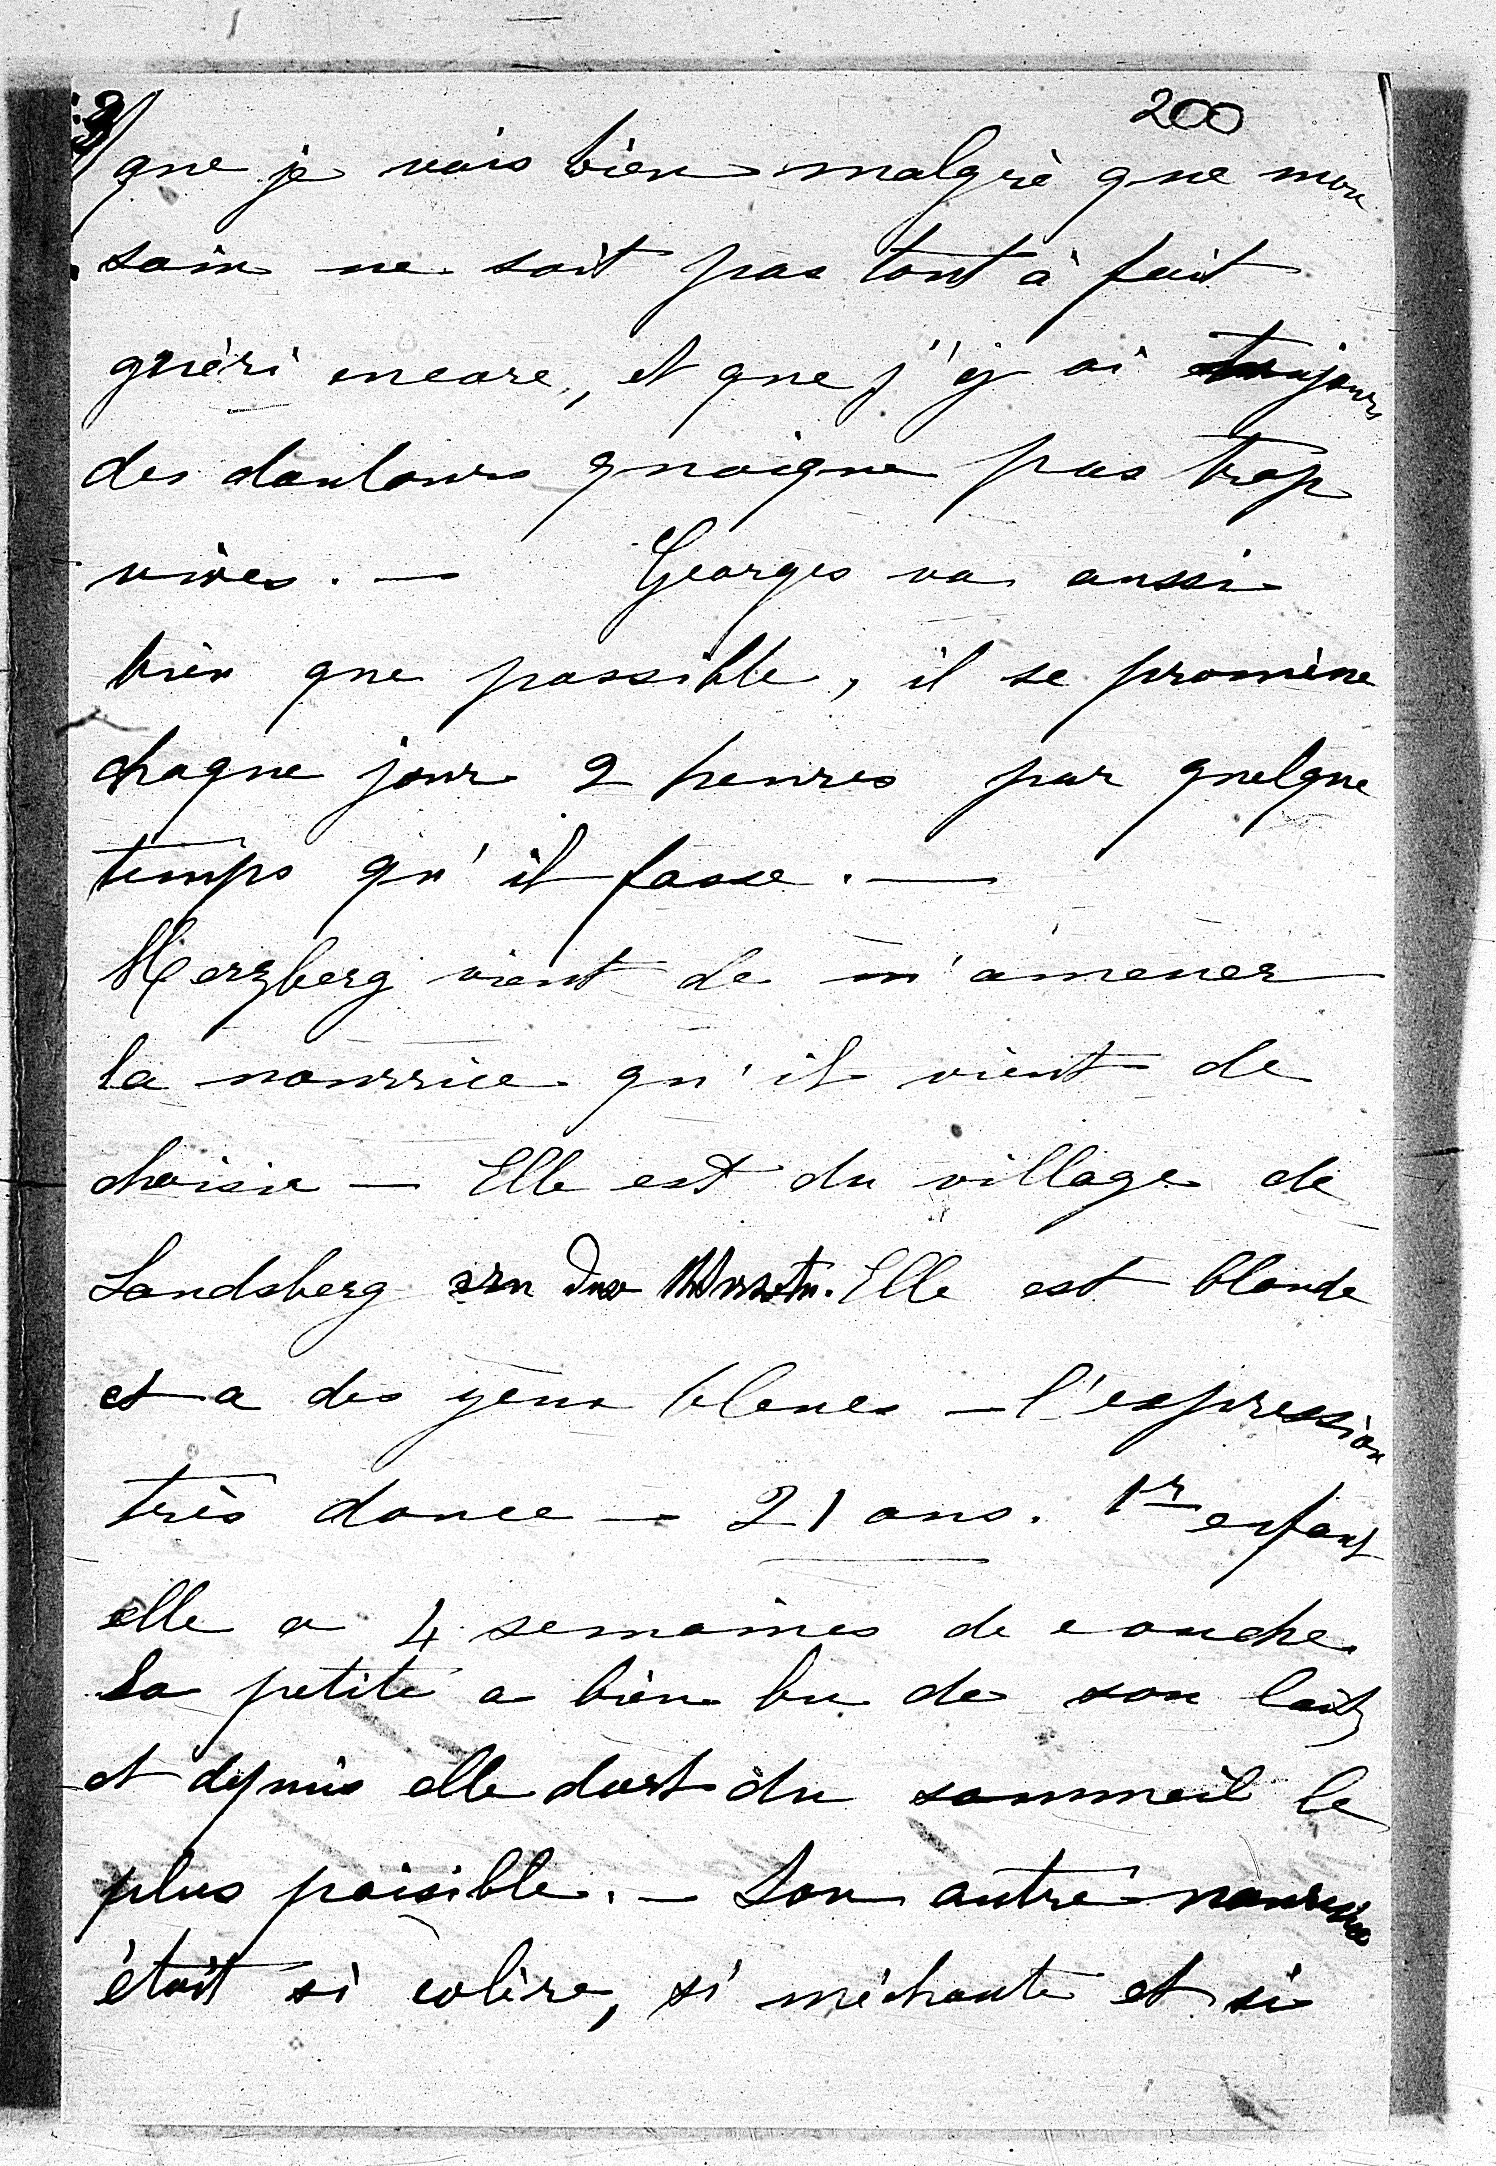 3/ 200
que je vais bien malgré que mon
sein ne soit pas tout à fait
guéri encore, et que j'y ai toujours
des douleurs quoique pas trop
vives. — Georges va aussi
bien que possible, il se promène
chaque jour 2 heures par quelque
temps qu'il fasse. —
Herzberg vient de m'amener
la nourrice qu'il vient de
choisir — Elle est du village de
Landsberg an der Warthe. Elle est blonde
et a des yeux bleues — l'expression
très douce — 21 ans. 1r enfant
elle a 4 semaines de couche
La petite a bien bu de son lait,
et depuis elle dort du sommeil le
plus paisible. — Son autre nourrice
était si colère, si méchante et si